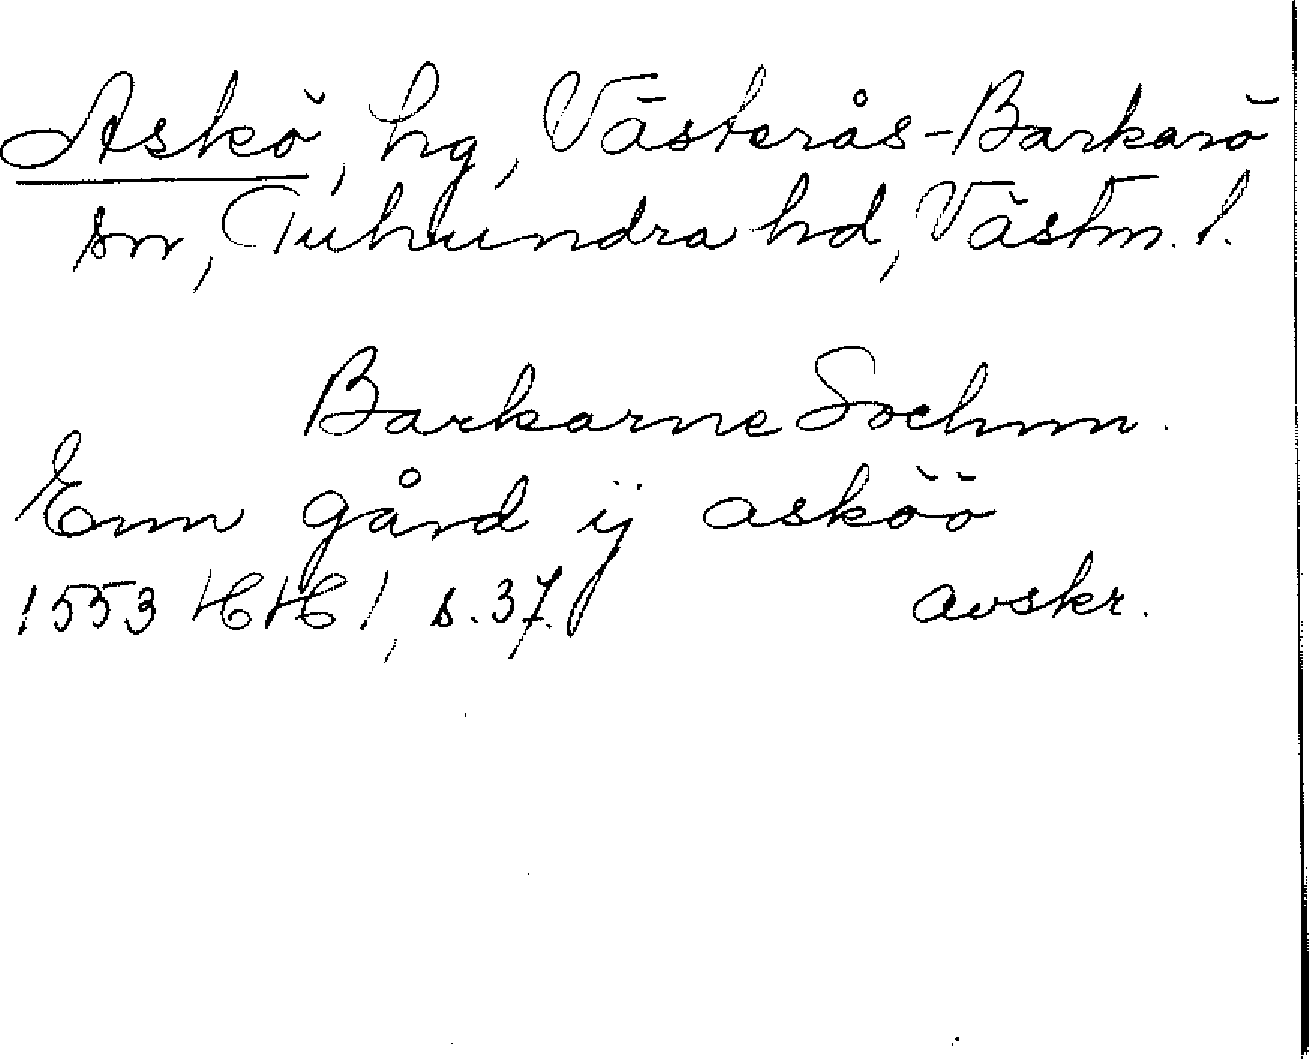 Askö, hg, Västerås-Barkarö
sn, Tuhundra hd, Västm. l.
Barkarne Sochnn.
Enn gård ij asköö
1553 HH 1, s. 37.
avskr.